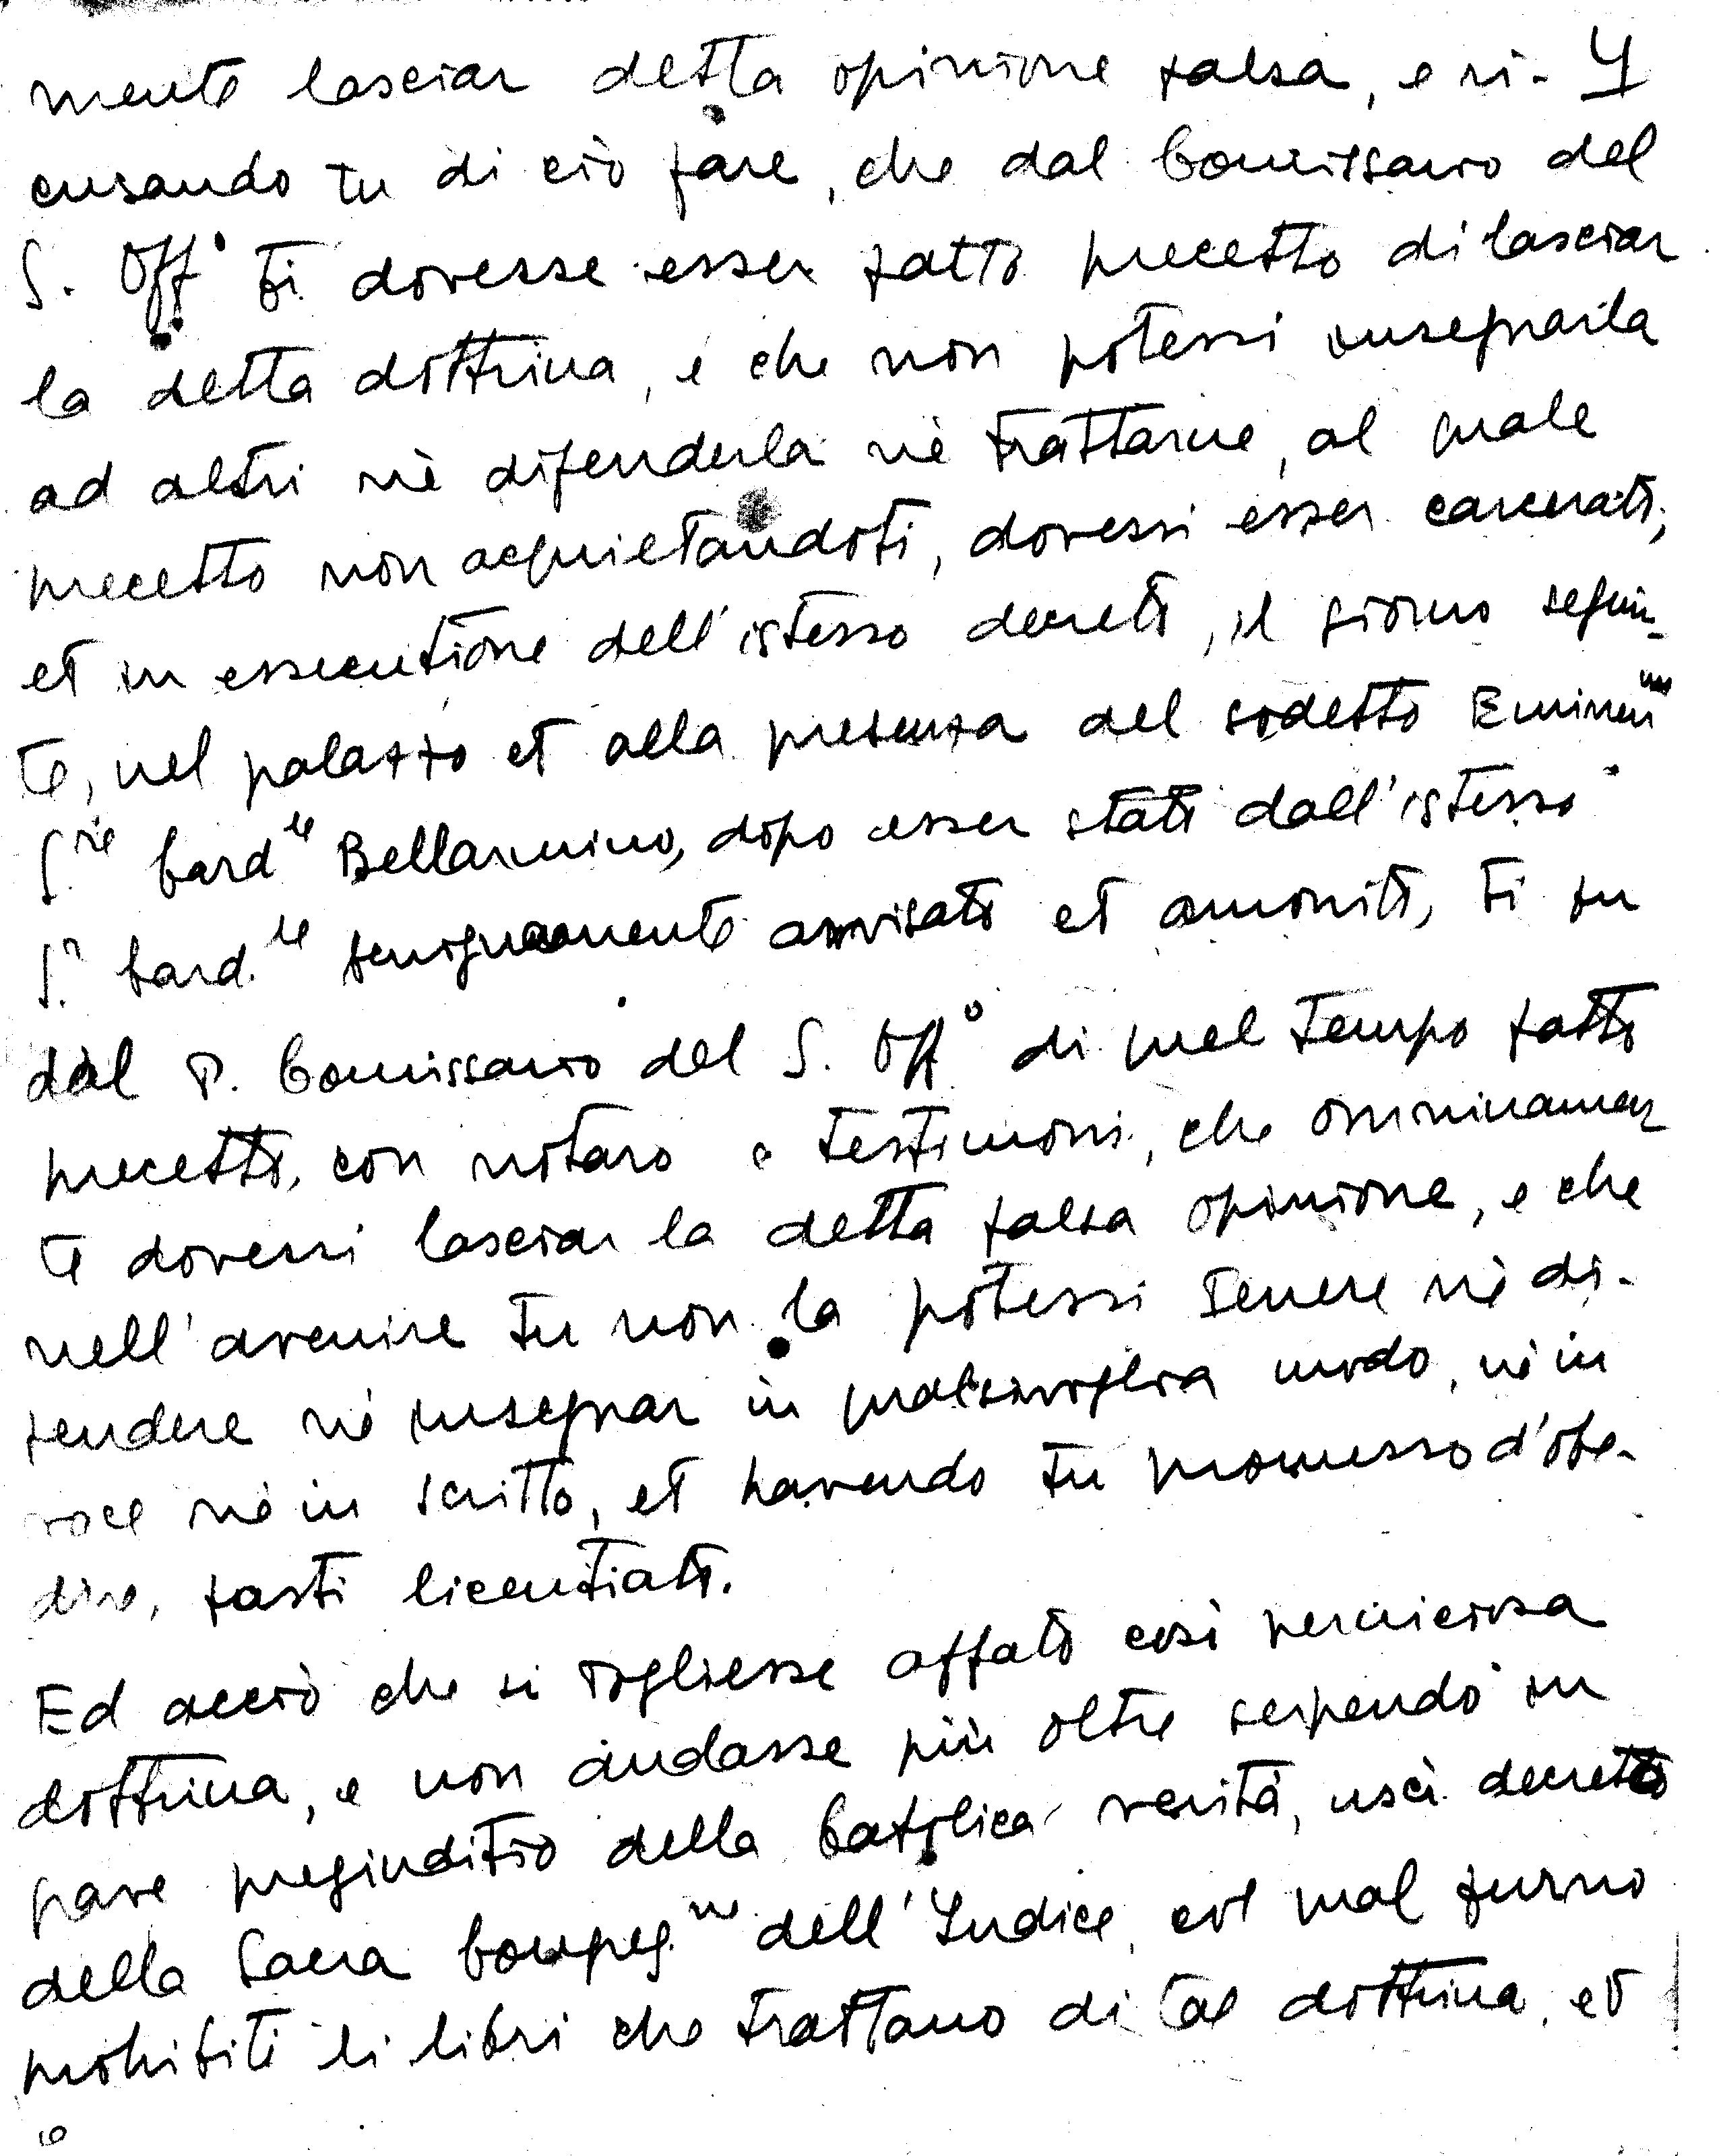 mente lasciar detta opinione falsa, e ri- 4
cusando tu di ciò fare, che dal Comissario del
S. Off° ti dovesse esser fatto precetto di lasciar
la detta dottrina, e che non potessi insegnarla
ad altri nè difenderla nè trattarne, al quale
precetto non acquietandoti, dovessi esser carcerato;
et in essecutione dell'istesso decreto, il giorno seguen-
te, nel palazzo et alla presenza del sodetto Eminen^mo
S.^re Card^le Bellarmino, dopo esser stato dall'istesso
S.^r Card.^le benignamente avvisato et amonito, ti fu
dal P. Comissario del S. Off° di quel tempo fatto
precetto, con notaro e testimoni, che omninamen
te dovessi lasciar la detta falsa opinione, e che
nell'avenire tu non la potessi tenere nè di-
fendere nè insegnar in qualsivoglia modo, nè in
voce nè in scritto, et havendo tu promesso d'obe-
dire, fosti licentiato.
Ed acciò che si togliesse affato così perniciosa
dottrina, e non andasse più oltre serpendo in
grave pregiuditio della Catolica verità, uscì decreto
della Sacra Congreg.^ne dell'Indice, col qual furno
prohibiti li libri che trattano di tal dottrina, et